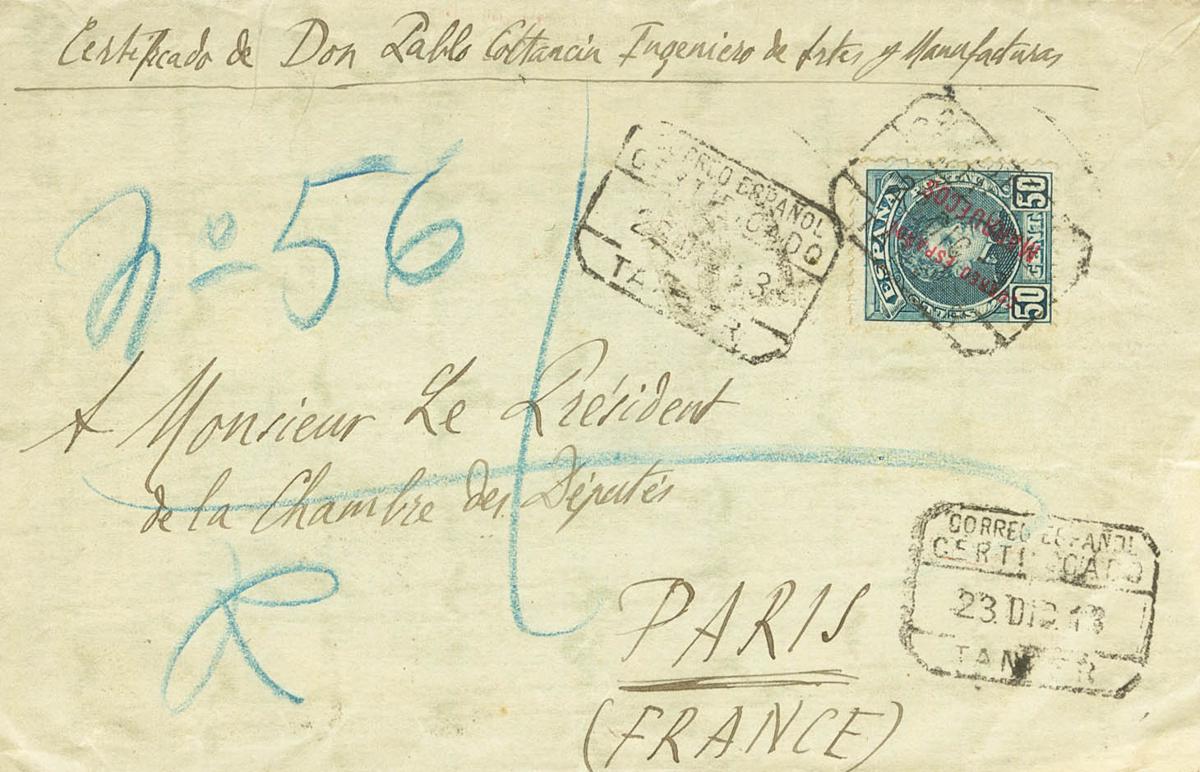 Certificado de Don Pablo Ingeniero de Artes y Manufacturas
Nº 56
CORREO ESPAÑOL
CERTIFICADO
23 DIC 13
TANGER
ESPAÑA
50
CENT
50
CORREO ESPAÑOL
MARRUECOS
A Monsieur Le Président
de la Chambre des Députés
R
PARIS
(FRANCE)
CORREO ESPAÑOL
CERTIFICADO
23. DIC. 13
TANGER